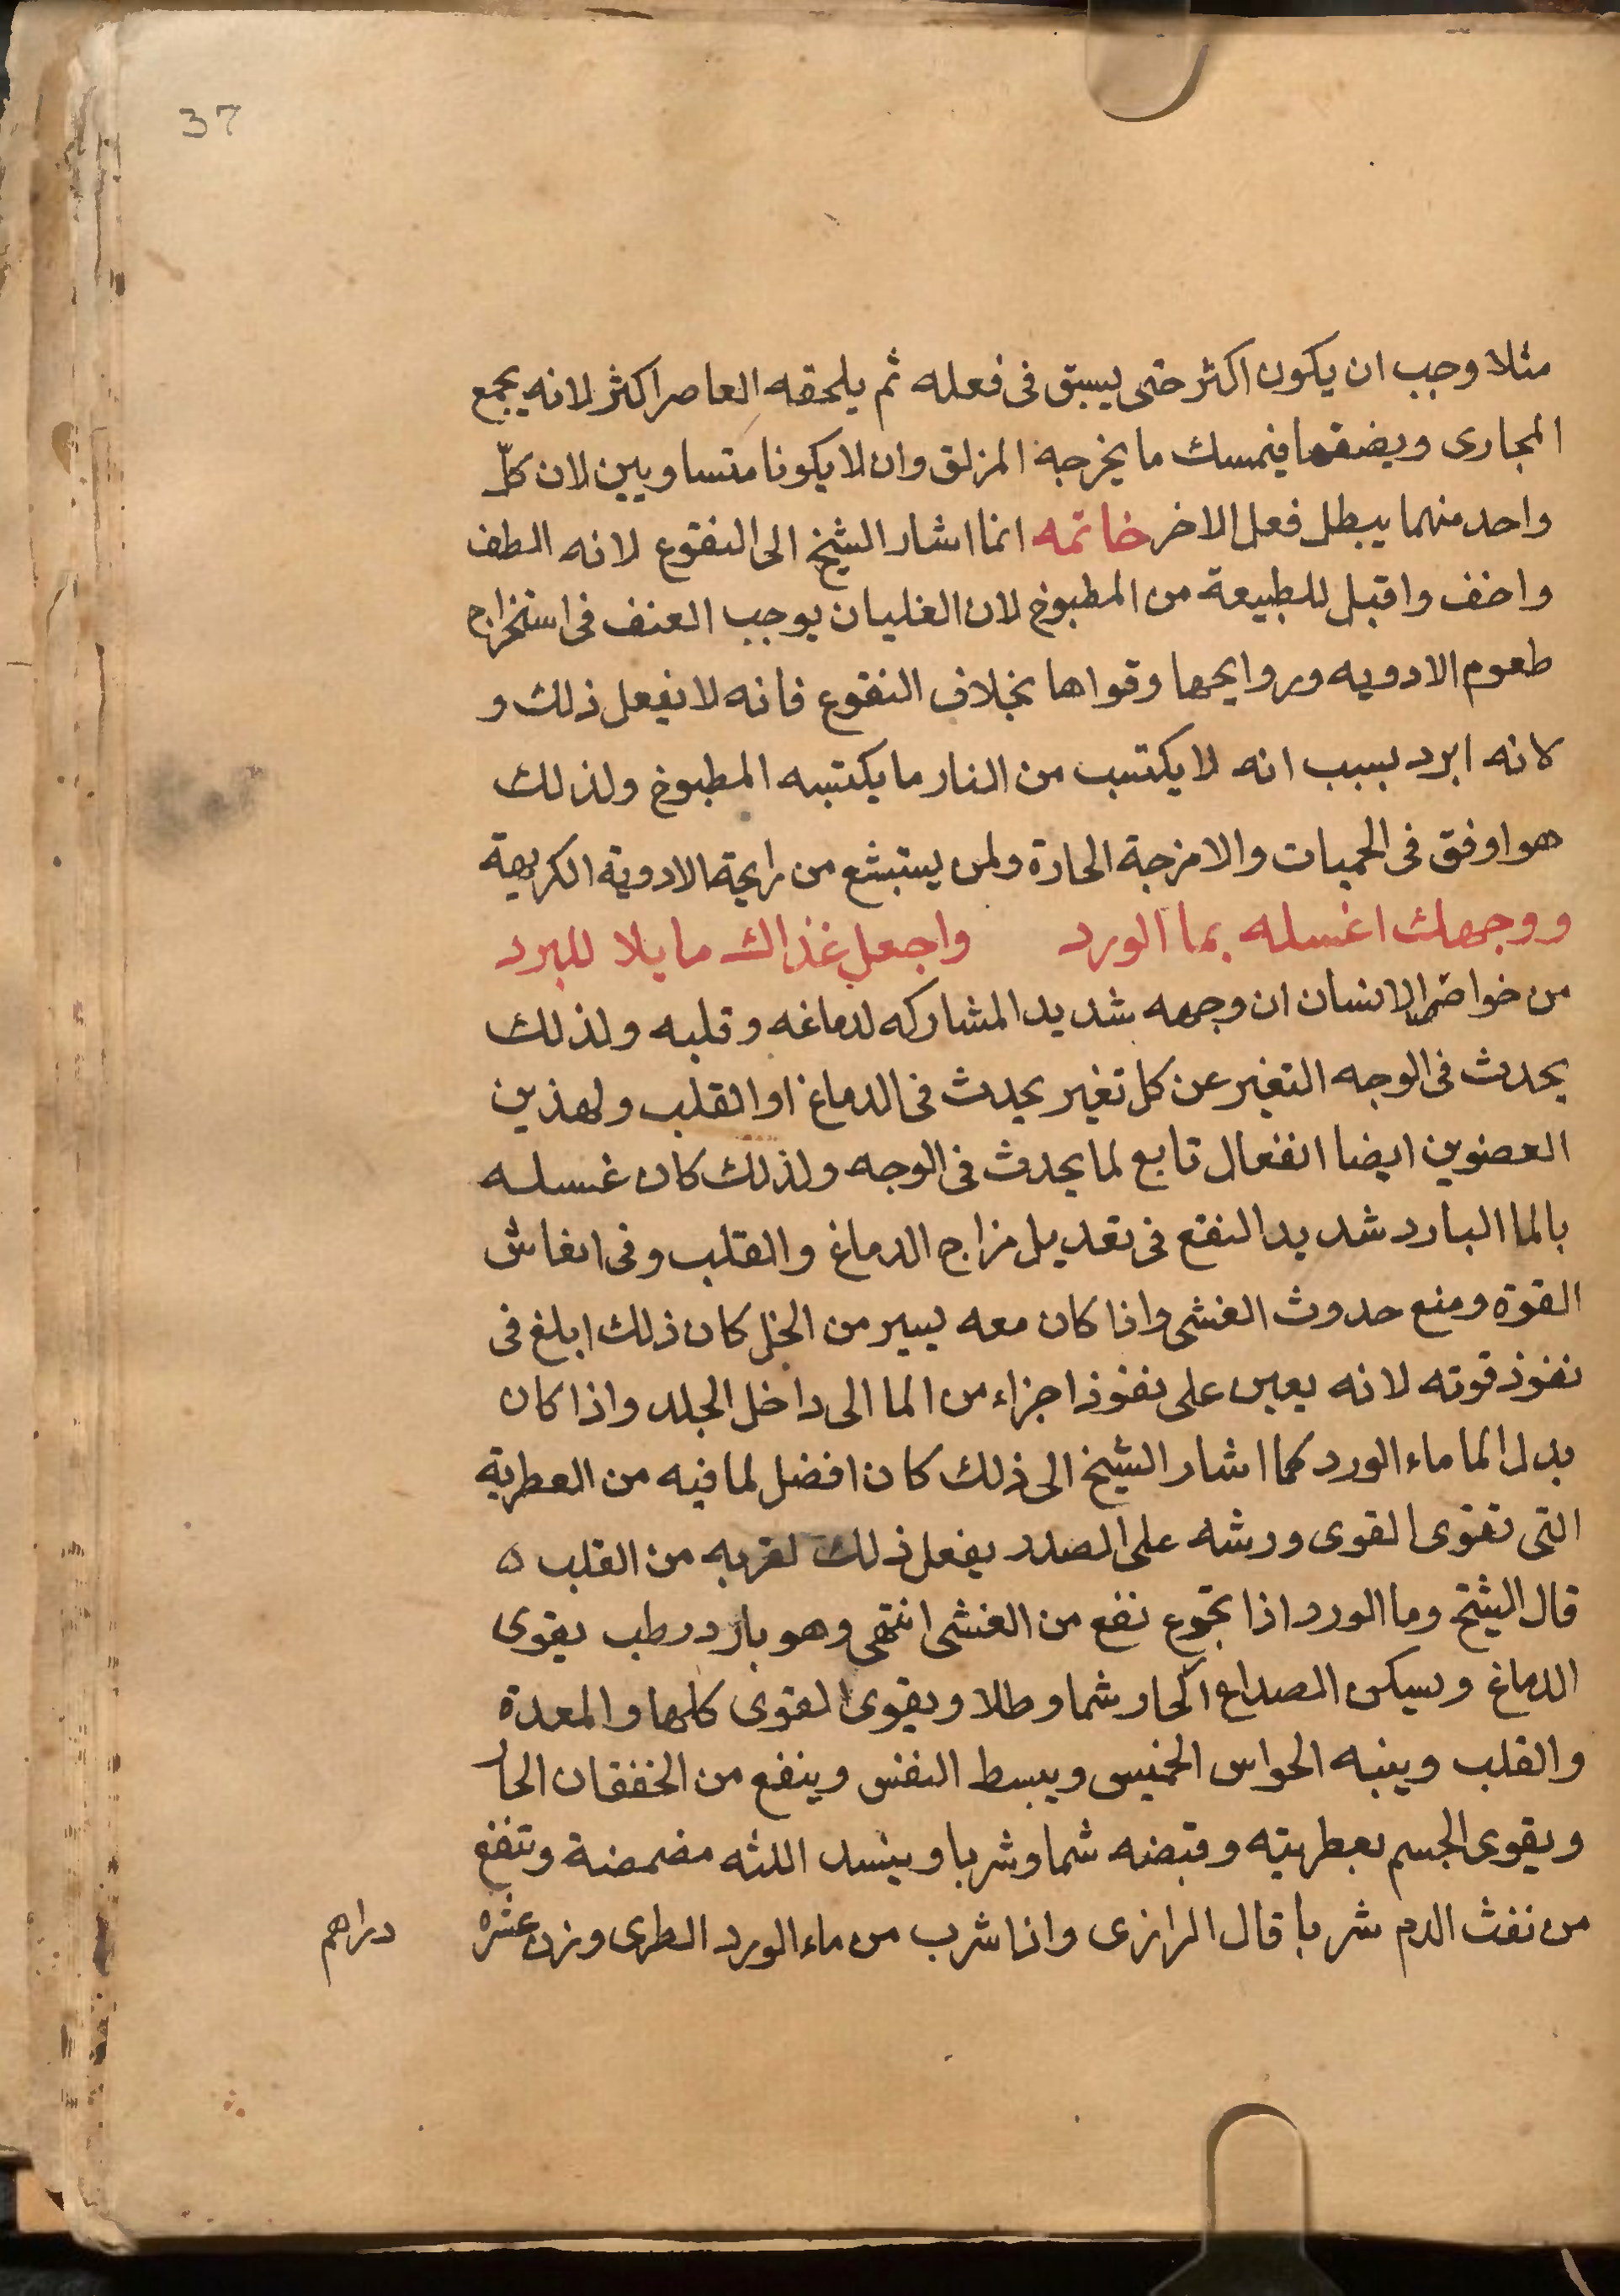 37
مثلا وجب ان يكون اكثر حتى يسبق فى فعله ثم يلحقه العاصر اكثر لانه يجمع
المجارى ويضقها فيمسك ما يخرجه المزلق وان لا يكونا متساويين لان كلّ
واحد منهما يبطل فعل الاخر خاتمه انما اشار الشيخ الى النقوع لانه الطف
واخف واقبل للطبيعة من المطبوخ لان الغليان يوجب العنف فى استخراج
طعوم الادويه وروايحها وقواها بخلاف النقوع فانه لا يفعل ذلك و
لانه ابرد بسبب انه لا يكتسب من النار ما يكتسبه المطبوخ ولذلك
هو اوفق فى الحميات والامزجة الحارة ولمن يستبشع من رايحة الادوية الكريهة
ووجهك اغسله بما الورد واجعل غذاك مايلا للبرد
من خواص الانسان ان وجهه شديد المشاركه لدماغه وقلبه ولذلك
يحدث فى الوجه التغير عن كل تغير يحدث فى الدماغ او القلب ولهذين
العضوين ايضا انفعال تابع لما يحدث فى الوجه ولذلك كان غسله
بالما البارد شديد النفع فى تعديل مزاج الدماغ والقلب وفى انعاش
القوة ومنع حدوث الغشى واذا كان معه يسير من الخل كان ذلك ابلغ فى
نفوذ قوته لانه يعين على نفوذ اجزاء من الما الى داخل الجلد واذا كان
بدل الما ماء الورد كما اشار الشيخ الى ذلك كان افضل لما فيه من العطرية
التى تقوى القوى ورشه على الصدر يفعل ذلك لقربه من القلب ه
قال الشيخ وما الورد اذا تجوع نفع من الغشى انتهى وهو بارد رطب يقوى
الدماغ ويسكن الصداع الحار شما وطلا ويقوى القوى كلها والمعدة
والقلب وينبه الحواس الخمس ويبسط النفس وينفع من الخفقان الحار
ويقوى الجسم بعطريته وقبضه شما وشربا ويشد اللثه مضمضة وتنفع
من نفث الدم شربا قال الرازى واذا شرب من ماء الورد الطرى وزن عشره
دراهم